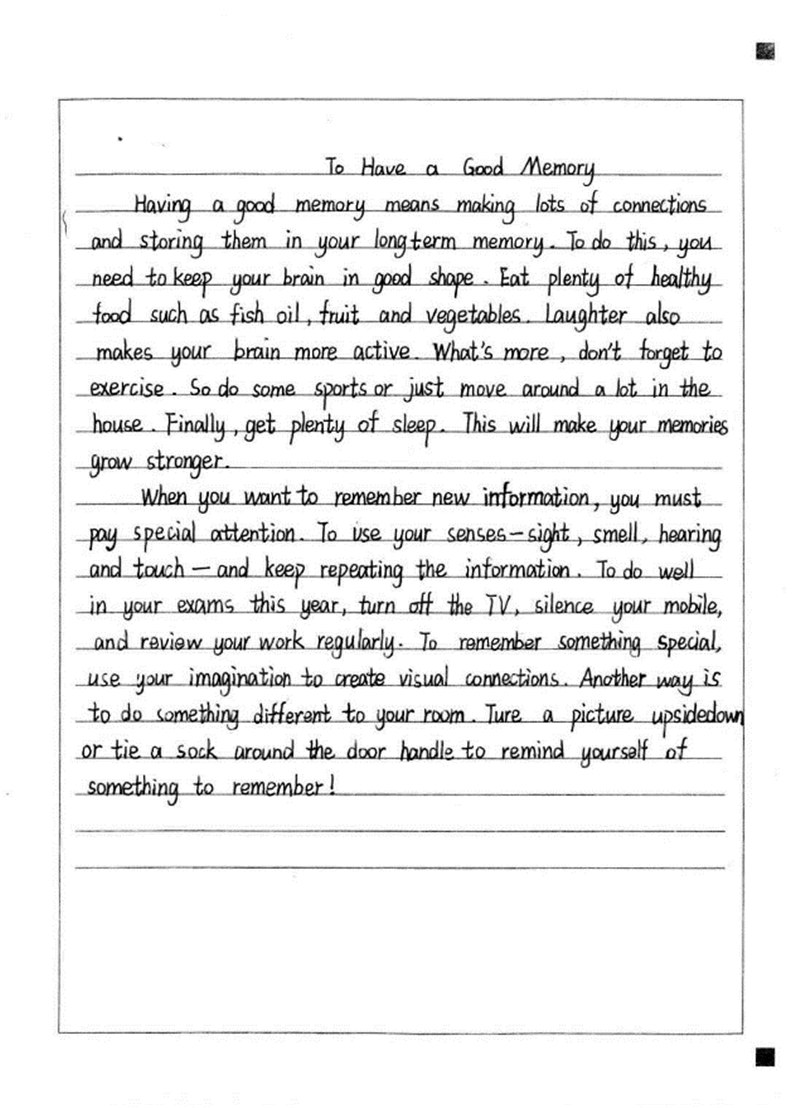 To Have a Good Memory
Having a good memory means making lots of connections
and storing them in your longterm memory. To do this, you
need to keep your brain in good shape. Eat plenty of healthy
food such as fish oil, fruit and vegetables. Laughter also
makes your brain more active. What's more, don't forget to
exercise. So do some sports or just move around a lot in the
house. Finally, get plenty of sleep. This will make your memories
grow stronger.
When you want to remember new information, you must
pay special attention. To use your senses—sight, smell, hearing
and touch—and keep repeating the information. To do well
in your exams this year, turn off the TV, silence your mobile,
and review your work regularly. To remember something special,
use your imagination to create visual connections. Another way is
to do something different to your room. Ture a picture upsidedown
or tie a sock around the door handle to remind yourself of
something to remember!